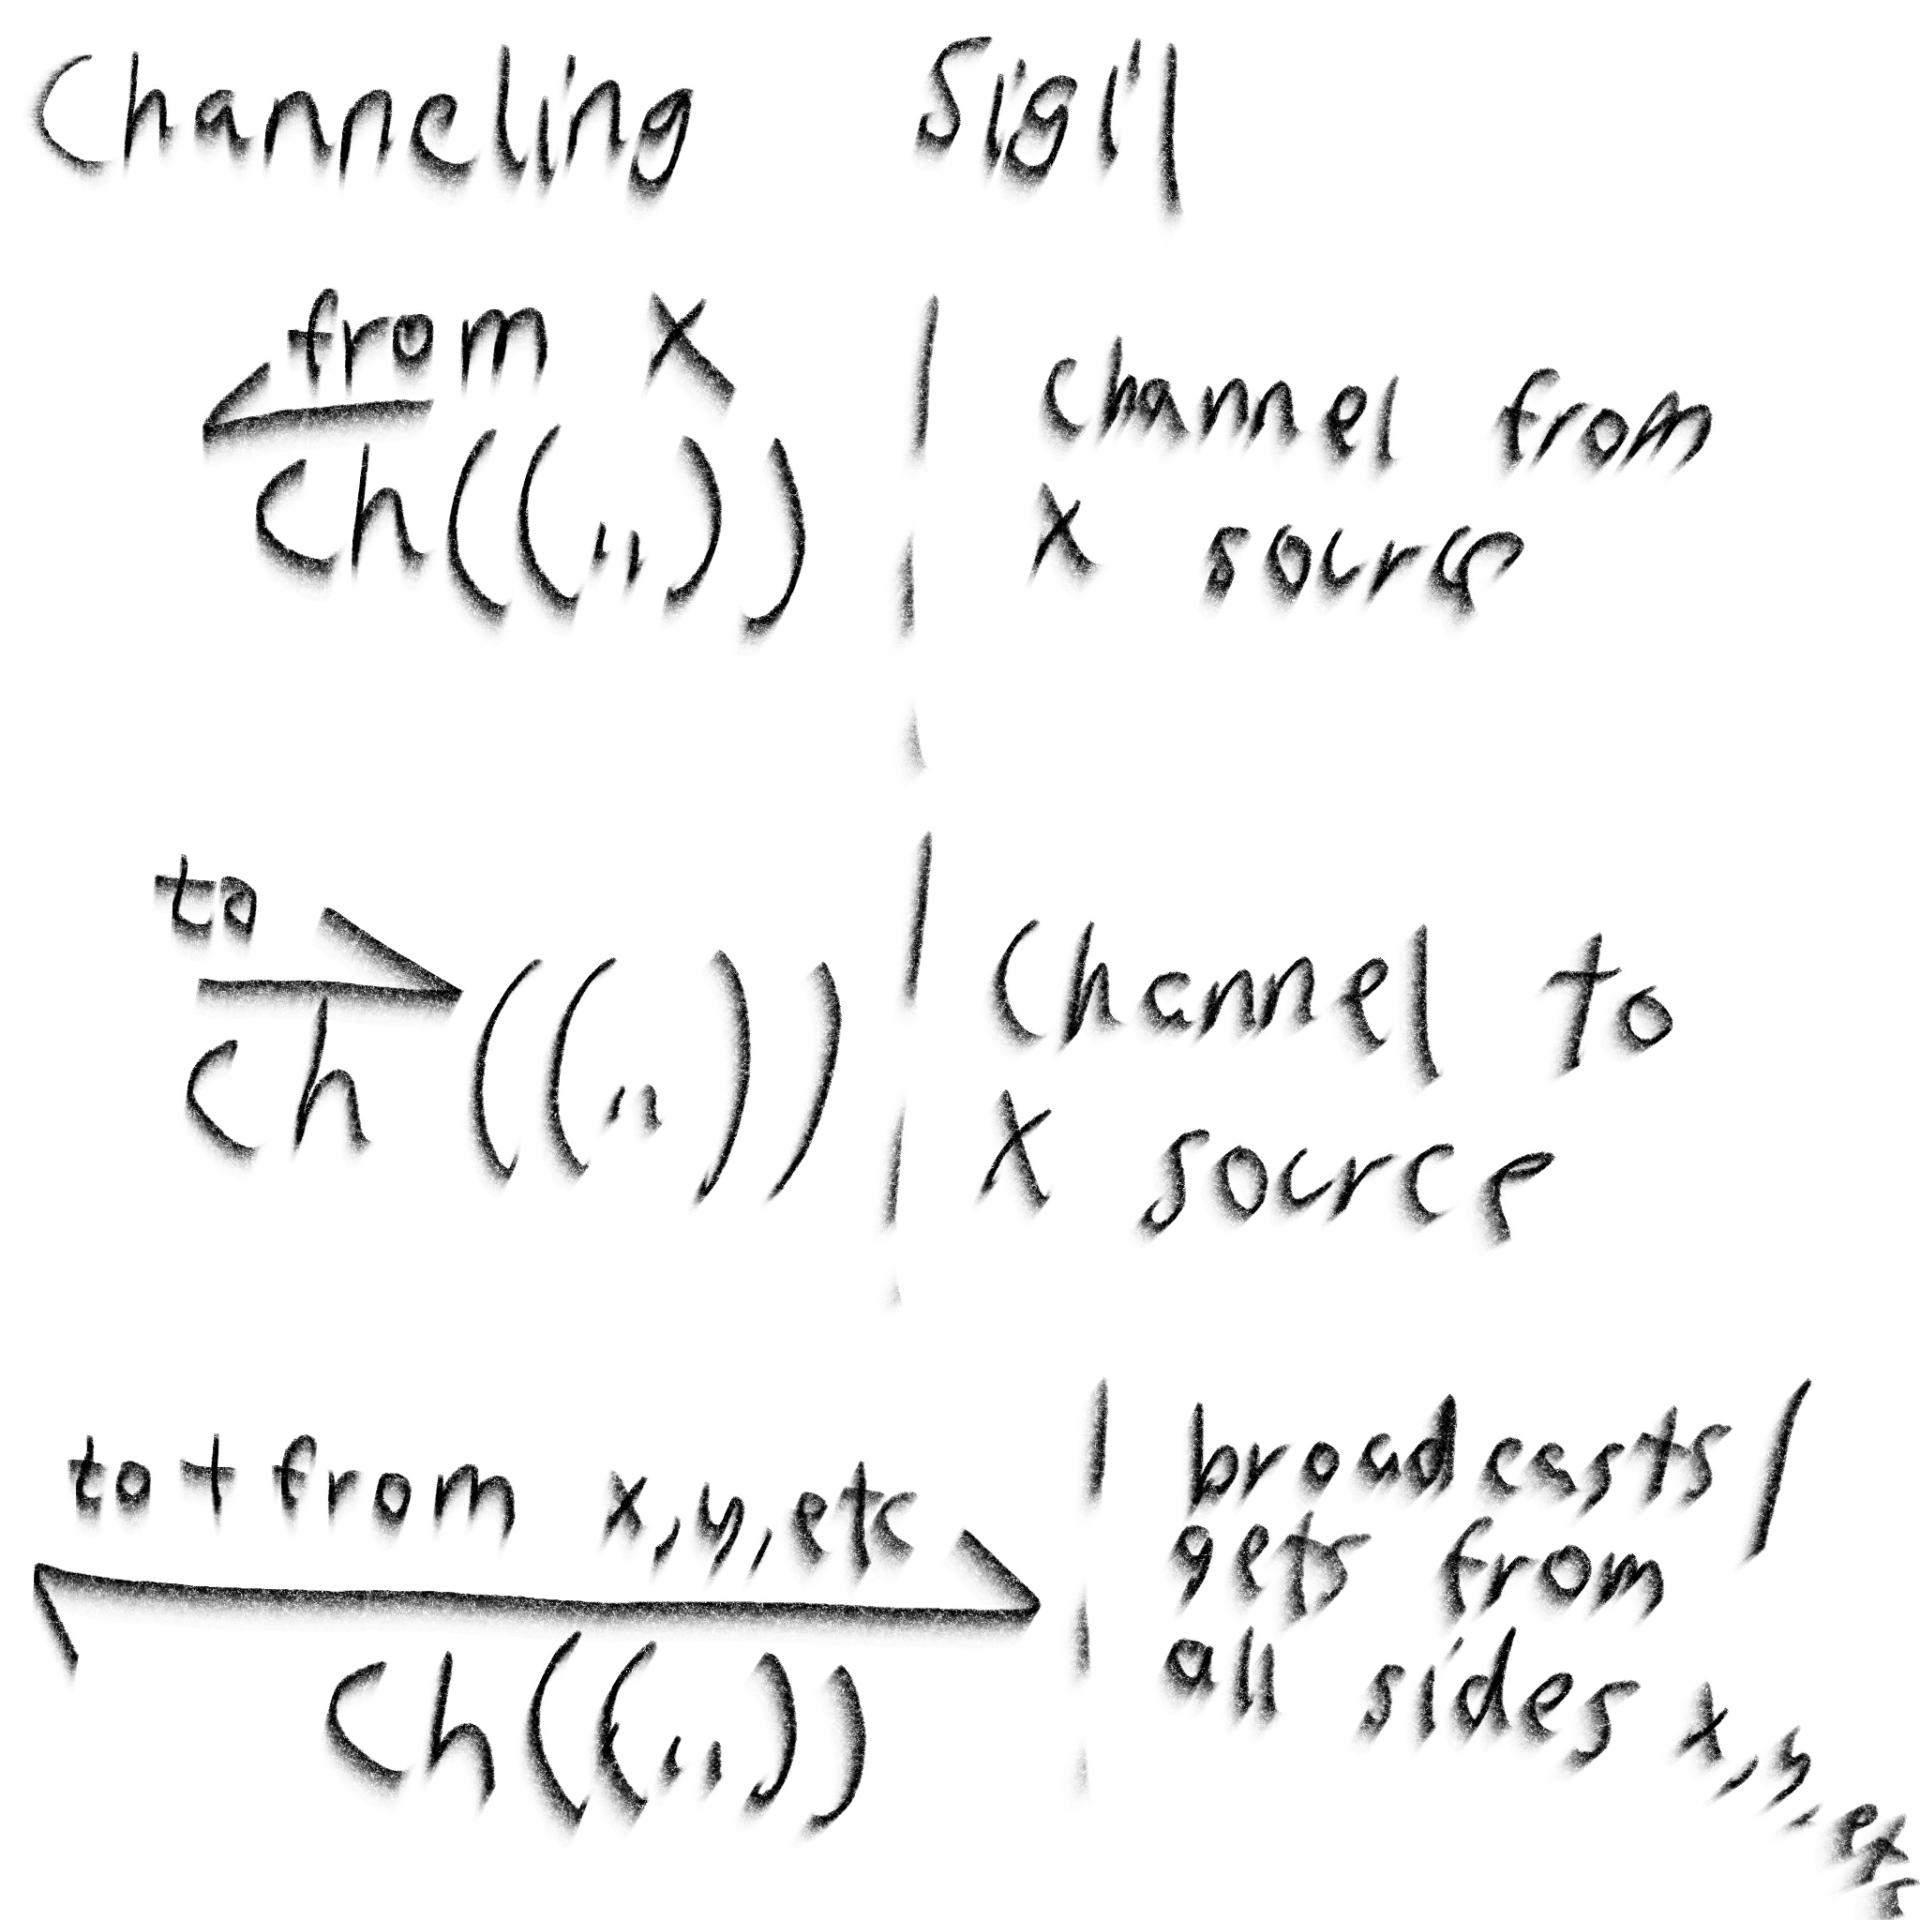 Channeling Sigil
from x
Ch((,,))
Channel from
x source
to
Ch((,,))
Channel to
x source
to + from x,y,etc
Ch((,,))
broadcasts/
gets from
all sides x,y,etc